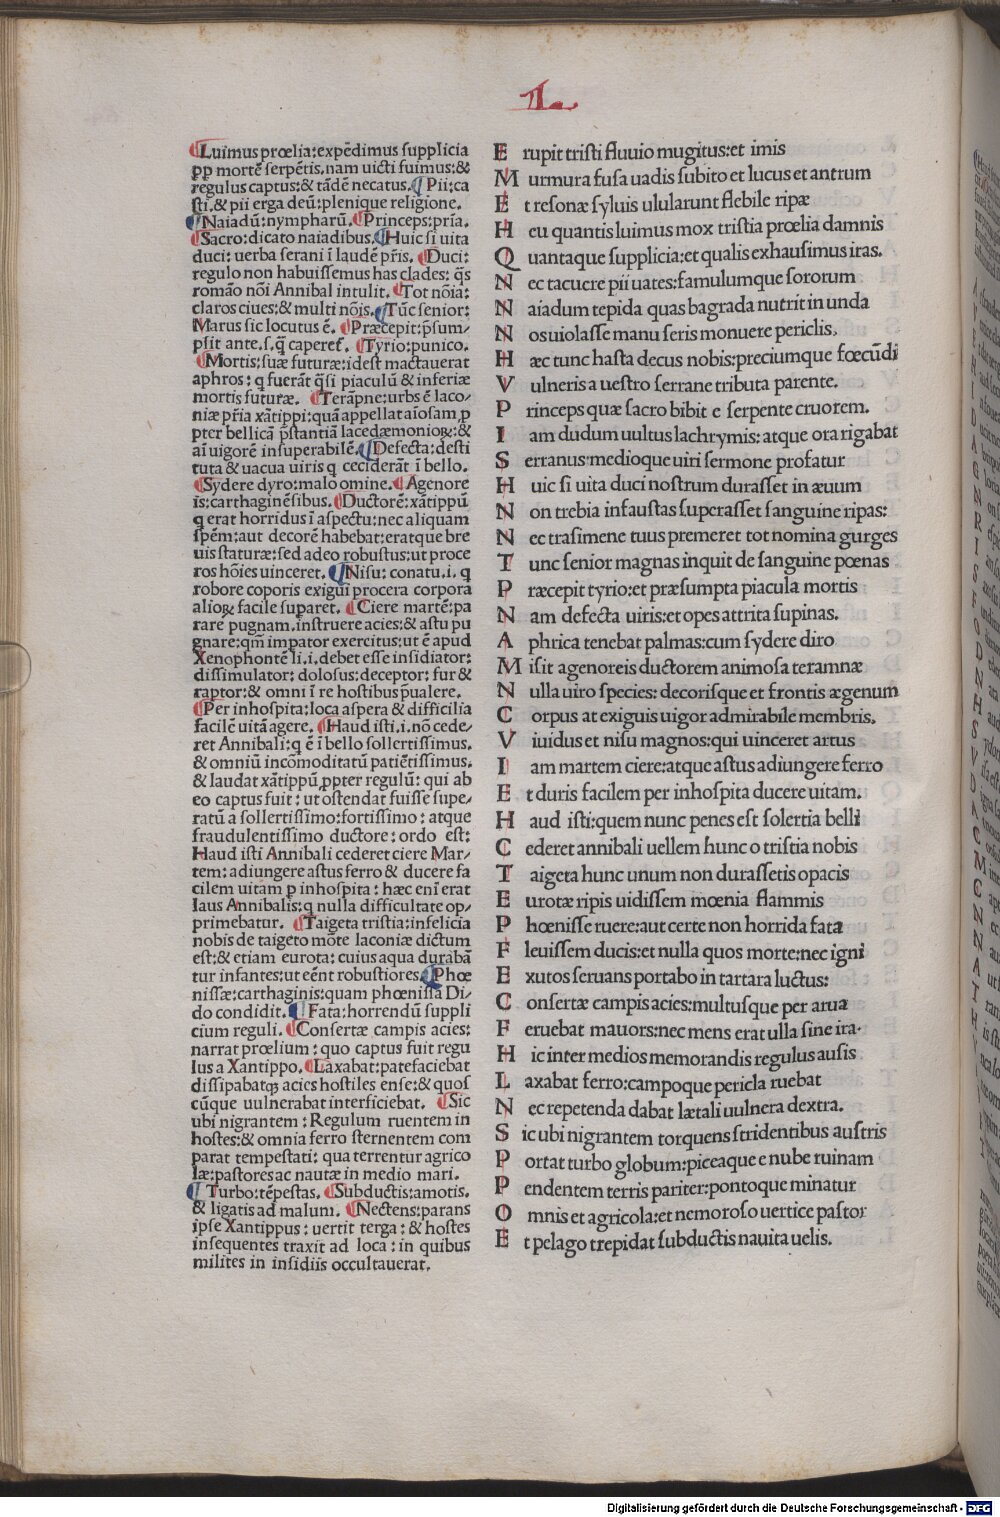 L
¶Luimus prœlia:expēdimus ſupplicia
ꝓp mortē ſerpētis.nam uicti fuimus:&
regulus captus:& tādē necatus.¶Pii:ca
ſti.& pii erga deū:plenique religione.
¶Naiadū:nympharū.¶Princeps:pŕia.
¶Sacro:dicato naiadibus.¶Huic ſi uita
duci: uerba ſerani ī laudē pŕis. ¶Duci:
regulo non habuiſſemus has clades: q̄s
romāo nōi Annibal intulit. ¶Tot nōia:
claros ciues:& multi nōis.¶Tūc ſenior:
Marus ſic locutus ē. ¶Præcepit:p̄ſum/
pſit ante.ſ.q̄ caperet̄. ¶Tyrio:punico.
¶Mortis:ſuæ futuræ:ideſt mactauerat
aphros: q fuerāt q̄ſi piaculū & inferiæ
mortis futuræ. ¶Terāpne:urbs ē laco/
niæ pŕia xātippi:quā appellat aīoſam ꝓ
pter bellicā p̄ſtantiā lacedæmonioꝝ:&
aī uigorē inſuperabilē.¶Defecta:deſti
tuta & uacua uiris q ceciderāt ī bello.
¶Sydere dyro:malo omine.¶Agenore
is:carthaginēſibus.¶Ductorē:xātippū
q erat horridus ī aſpectu:nec aliquam
ſpēm:aut decorē habebat:eratque bre
uis ſtaturæ:ſed adeo robuſtus:ut proce
ros hōīes uinceret.¶Niſu: conatu.i. q
robore coporis exigui procera corpora
alioꝝ facile ſuꝑaret. ¶Ciere martē:pa
rare pugnam.inſtruere acies:& aſtu pu
gnare:qm̄ impator exercitus:ut ē apud
Xenophontē li.i.debet eſſe inſidiator:
diſſimulator: doloſus:deceptor: fur &
raptor:& omni ī re hoſtibus p̄ualere.
¶Per inhoſpita:loca aſpera & difficilia
facilē uitā agere. ¶Haud iſti.i.nō cede/
ret Annibali:q ē ī bello ſollertiſſimus.
& omniū incōmoditatū patiētiſſimus.
& laudat xātippū ꝓpter regulū: qui ab
eo captus fuit: ut oſtendat fuiſſe ſupe/
ratū a ſollertiſſimo:fortiſſimo: atque
fraudulentiſſimo ductore: ordo eſt:
Haud iſti Annibali cederet ciere Mar/
tem: adiungere aſtus ferro & ducere fa
cilem uitam ꝑ inhoſpita: hæc enī erat
laus Annibalis: q nulla difficultate op/
primebatur. ¶Taigeta triſtia:infelicia
nobis de taigeto mōte laconiæ dictum
eſt:& etiam eurota: cuius aqua durabā
tur infantes:ut eēnt robuſtiores.¶Phœ
niſſæ:carthaginis:quam phœniſſa Di/
do condidit. ¶Fata:horrendū ſuppli
cium reguli. ¶Conſertæ campis acies:
narrat prœlium: quo captus fuit regu
lus a Xantippo.¶Laxabat:patefaciebat
diſſipabatqꝫ acies hoſtiles enſe:& quoſ
cūque uulnerabat interficiebat. ¶Sic
ubi nigrantem: Regulum ruentem in
hoſtes:& omnia ferro ſternentem com
parat tempeſtati: qua terrentur agrico
læ:paſtores ac nautæ in medio mari.
¶Turbo:tēpeſtas. ¶Subductis:amotis.
& ligatis ad malum. ¶Nectens:parans
ipſe Xantippus: uertit terga: & hoſtes
inſequentes traxit ad loca: in quibus
milites in inſidiis occultauerat.
E rupit triſti fluuio mugitus:et imis
M urmura fuſa uadis ſubito et lucus et antrum
E t reſonæ ſyluis ulularunt flebile ripæ
H eu quantis luimus mox triſtia prœlia damnis
Q uantaque ſupplicia:et qualis exhauſimus iras.
N ec tacuere pii uates:famulumque ſororum
N aiadum tepida quas bagrada nutrit in unda
N os uiolaſſe manu ſeris monuere periclis.
H æc tunc haſta decus nobis:preciumque fœcūdi
V ulneris a ueſtro ſerrane tributa parente.
P rinceps quæ ſacro bibit e ſerpente cruorem.
I am dudum uultus lachrymis: atque ora rigabat
S erranus·medioque uiri ſermone profatur
H uic ſi uita duci noſtrum duraſſet in æuum
N on trebia infauſtas ſuperaſſet ſanguine ripas:
N ec traſimene tuus premeret tot nomina gurges
T unc ſenior magnas inquit de ſanguine pœnas
P ræcepit tyrio:et præſumpta piacula mortis
N am defecta uiris:et opes attrita ſupinas.
A phrica tenebat palmas:cum ſydere diro
M iſit agenoreis ductorem animoſa teramnæ
N ulla uiro ſpecies: decoriſque et frontis ægenum
C orpus at exiguis uigor admirabile membris.
V iuidus et niſu magnos:qui uinceret artus
I am martem ciere:atque aſtus adiungere ferro
E t duris facilem per inhoſpita ducere uitam.
H aud iſti:quem nunc penes eſt ſolertia belli
C ederet annibali uellem hunc o triſtia nobis
T aigeta hunc unum non duraſſetis opacis
E urotæ ripis uidiſſem mœnia flammis
P hœniſſe ruere:aut certe non horrida fata
F leuiſſem ducis:et nulla quos morte:nec igni
E xutos ſeruans portabo in tartara luctus:
C onſertæ campis acies:multuſque per arua
F eruebat mauors:nec mens erat ulla ſine ira·
H ic inter medios memorandis regulus auſis
L axabat ferro:campoque pericla ruebat
N ec repetenda dabat lætali uulnera dextra.
S ic ubi nigrantem torquens ſtridentibus auſtris
P ortat turbo globum:piceaque e nube ruinam
P endentem terris pariter:pontoque minatur
O mnis et agricola:et nemoroſo uertice paſtor
E t pelago trepidat ſubductis nauita uelis.
Digitalisierung gefördert durch die Deutsche Forschungsgemeinschaft - DFG